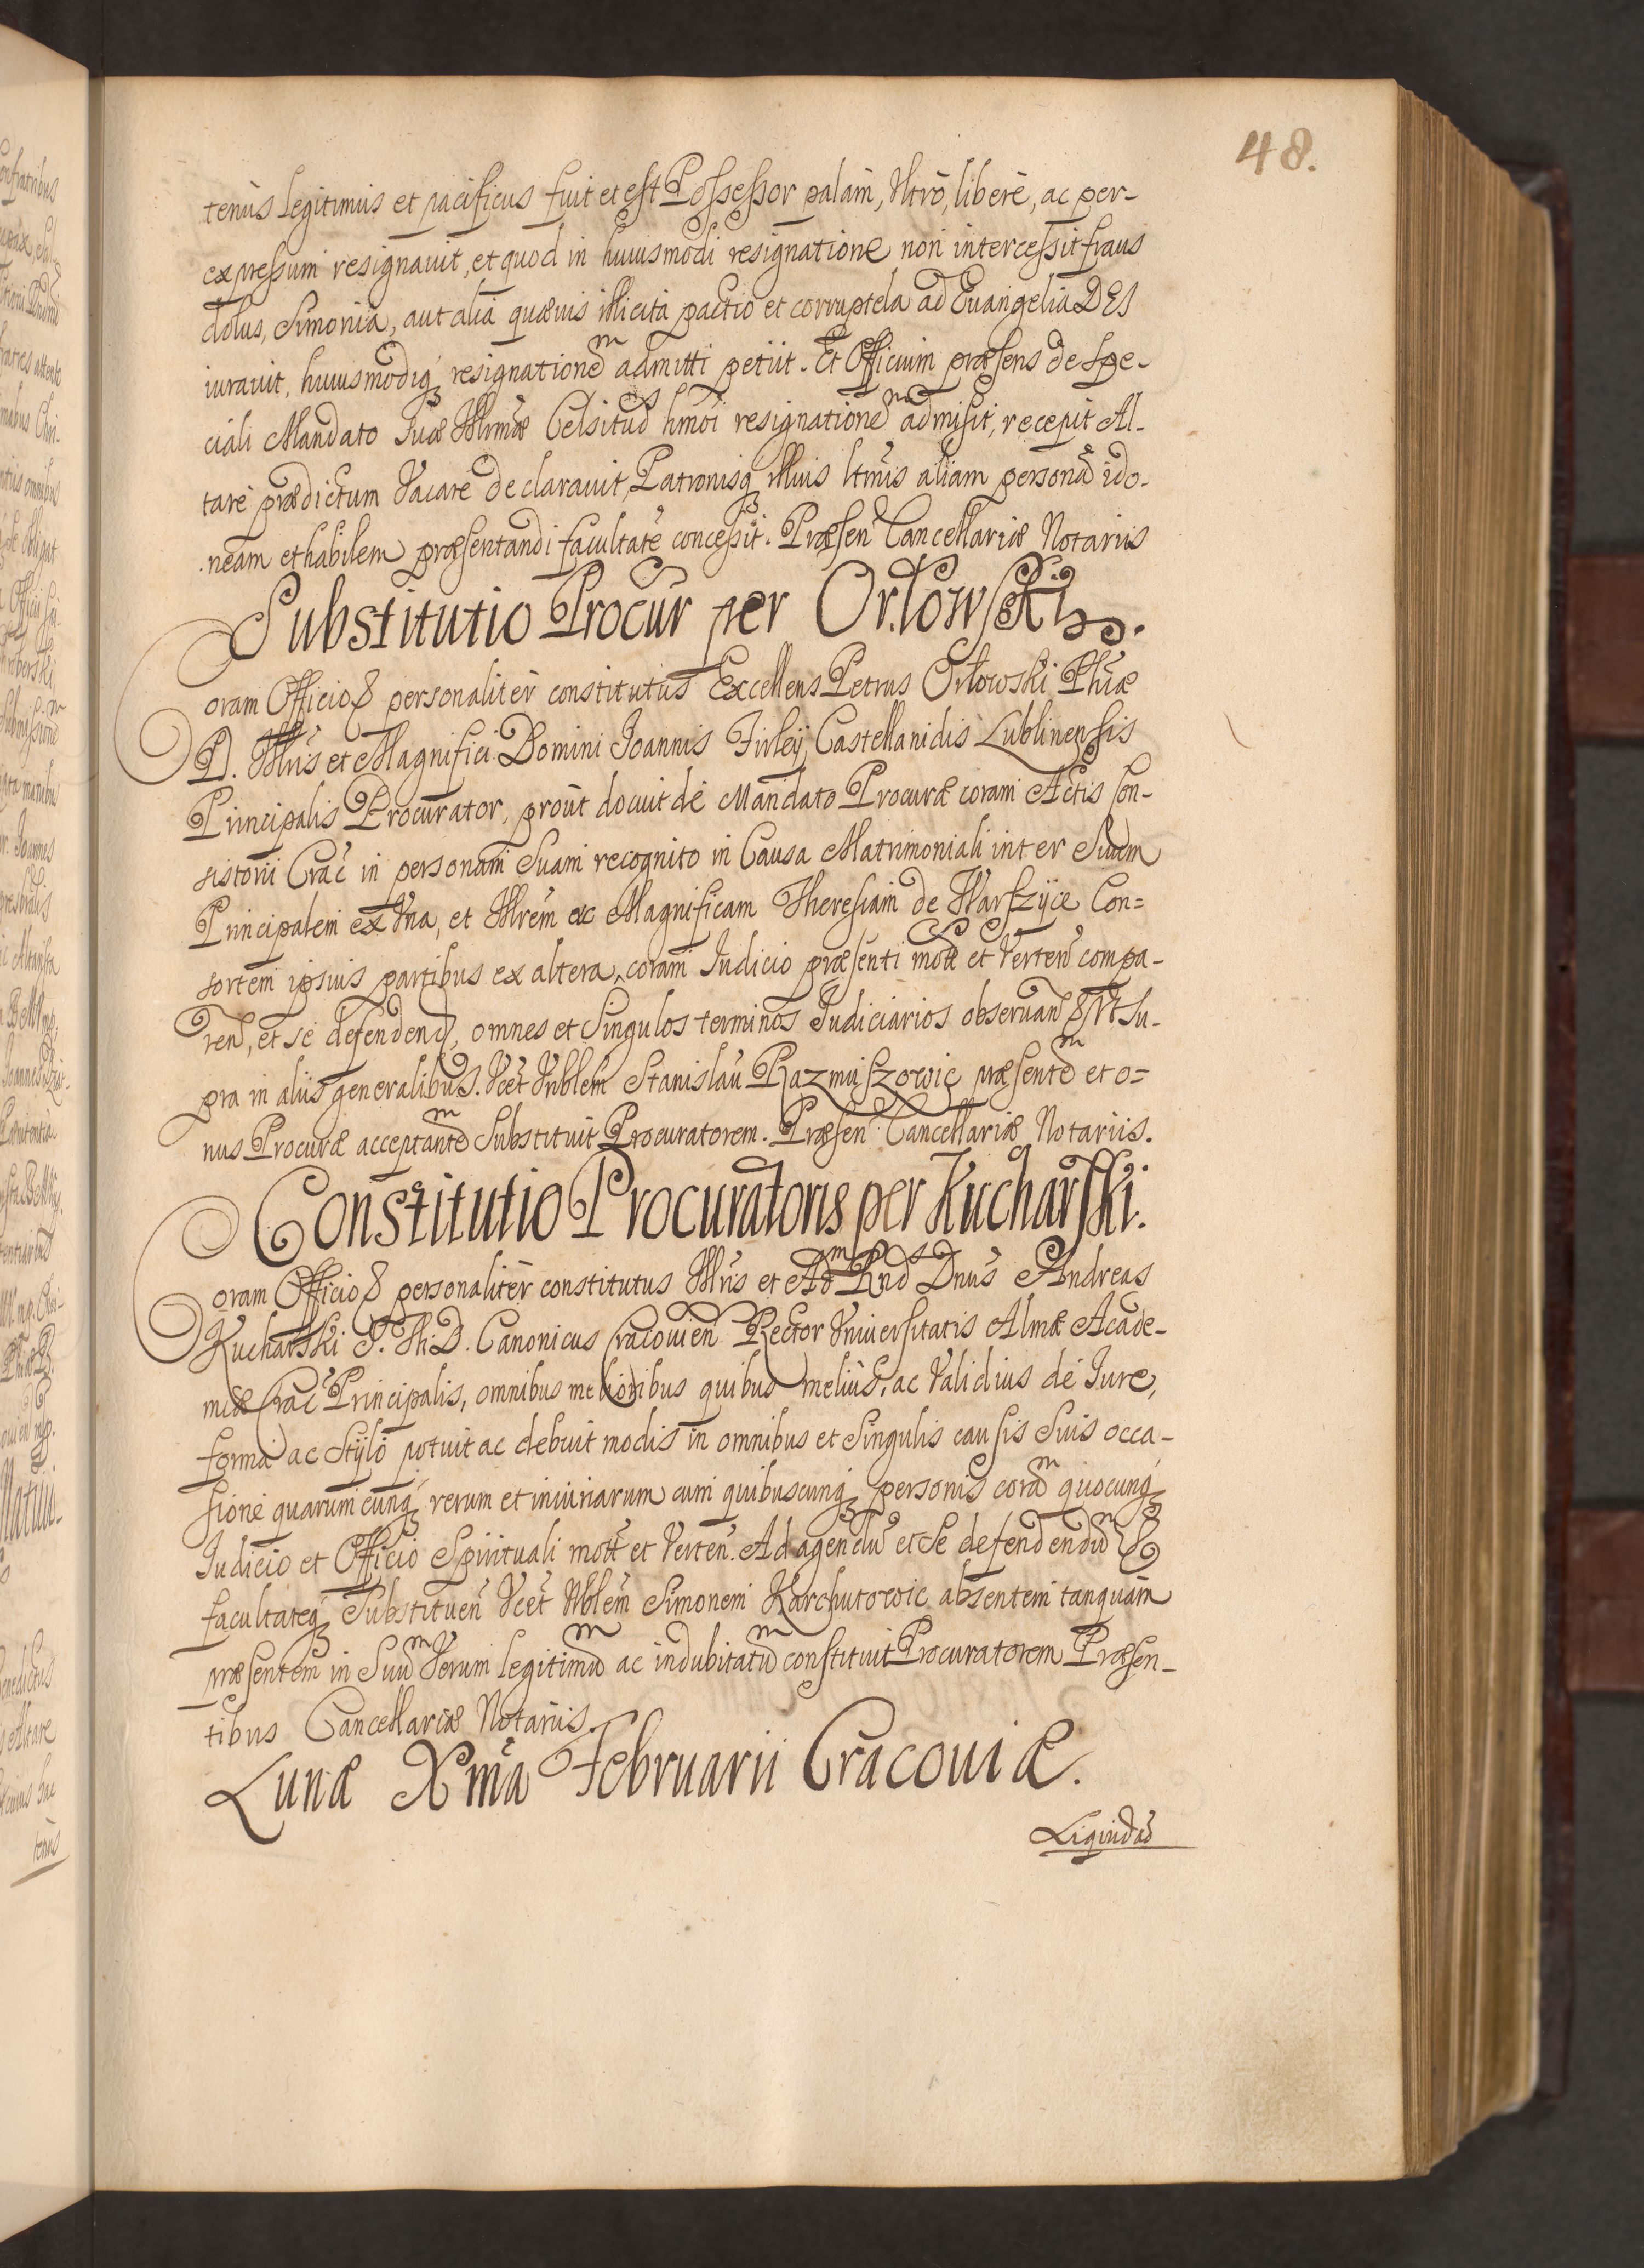 48.
tenus Legitimus et pacificus fuit et est Possessor palam, Vltrò, liberè, ac per-
expressum resignauit, et quod in huiusmodi resignatione non intercessit fraus
dolus, Simonia, aut alia quæuis illicita pactio et corruptela ad Euangelia DEI
iurauit, huiusmodiq; resignationem admitti petiit. Et Officium præsens de Spe-
ciali Mandato Suæ Illrmæ Celsitud hmoi resignationem admisit, recepit Al-
tare prædictum Vacare declarauit, Patronisq; illius ltmis aliam personã ido-
neam et habilem præsentandi facultatẽ concessit. Præsen Cancellariæ Notariis
Substitutio Procur per Orłowski
Coram Officio & personaliter constitutus Excellens Petrus Orłowski Phiæ
D. Illris et Magnifici Domini Joannis Firleÿ Castellanidis Lublinensis
Principalis Procurator, prout docuit de Mandato Procuræ coram Actis Con-
sistorii Crac in personam Suam recognito in Causa Matrimoniali inter Suum
Principalem ex Vna, et Illrem ac Magnificam Theresiam de Warszÿce Con=
sortem ipsius partibus ex altera, coram Iudicio præsenti mott et Verten compa-
ren, et se defenden, omnes et Singulos terminos Iudiciarios obseruan & Vt Su-
pra in aliis generalibus. Vcet Nblem Stanislaũ Kazmiszowic præsentem et o=
nus Procuræ acceptantem Substituit Procuratorem. Præsen Cancellariæ Notariis.
Constitutio Procuratoris per Kucharski.
Coram Officio & personaliter constitutus Illris et Adm Rnd Dnus Andreas
Kucharski S. Th. D. Canonicus Cracouien Rector Vniuersitatis Almæ Acade-
miæ Crac Principalis, omnibus melioribus quibus melius, ac Validius de Iure,
forma ac Stÿlo potuit ac debuit modis in omnibus et Singulis causis Suis occa-
sione quarumcunq; rerum et iniuriarum cum quibuscunq; personis coram quocunq;
Iudicio et Officio Spirituali mott et Verten. Ad agendũ et Se defendendum &
facultateq; Substituen Vcet Nblem Simonem Karchutowic absentem tanquam
præsentem in Suum Verum Legitimum ac indubitatum constituit Procuratorem Præsen-
tibus Cancellariæ Notariis.
Lunæ Xma Februarii Cracouiæ.